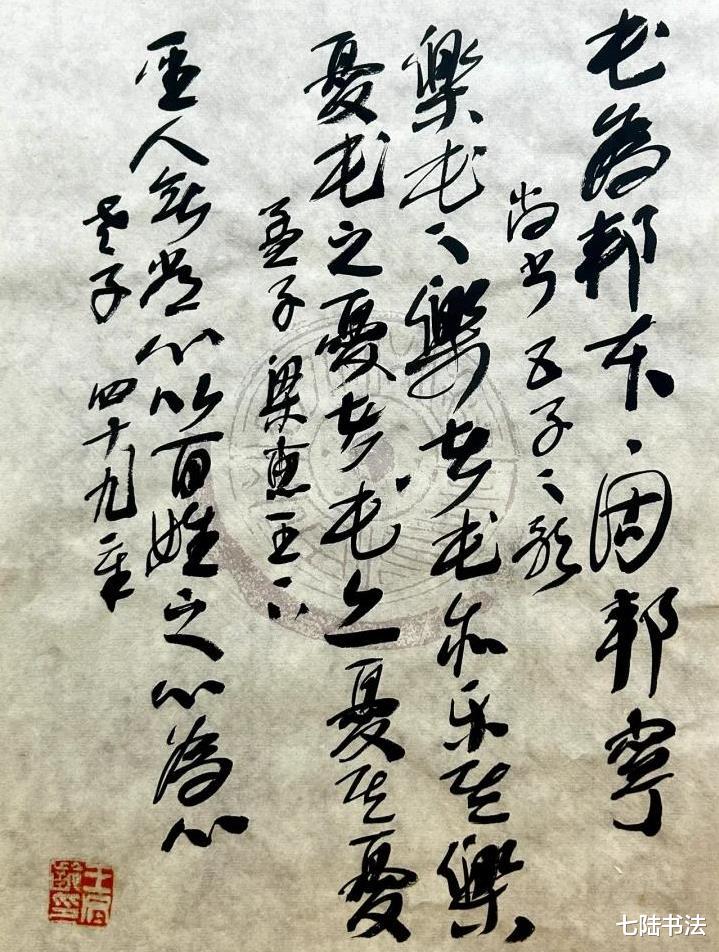 民為邦本々固邦寧
尚书 五子之歌
樂民之樂者民亦乐其樂
憂民之憂者民亦憂其憂
孟子 梁惠王下
聖人無常心以百姓之心為心
老子 四十九章
七陆书法